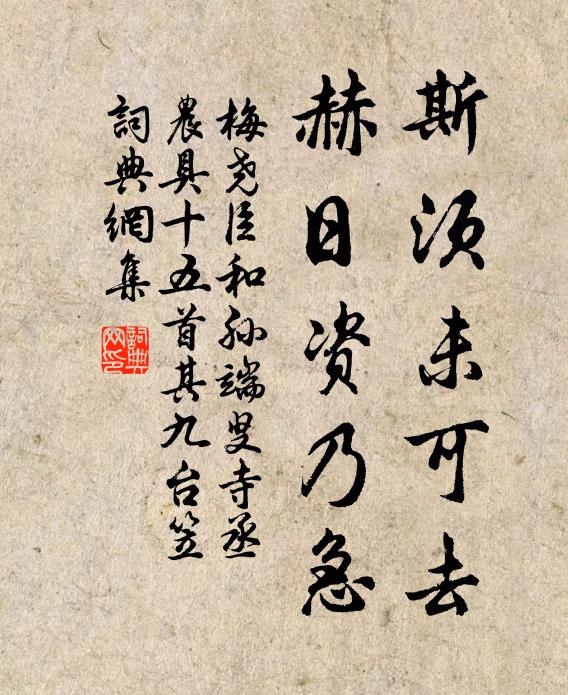 斯须未可去
赫日资乃急
梅尧臣和孙端叟寺丞
農具十五首其九台笠
詞典網集
詞典网印